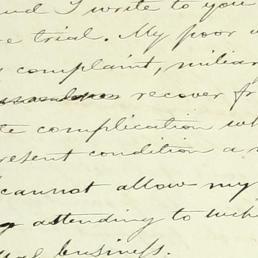 and I write to you
trial. My poor
complaint, miliar
recover fr
te complication wh
resent condition a
cannot allow my
attending to wh
business.